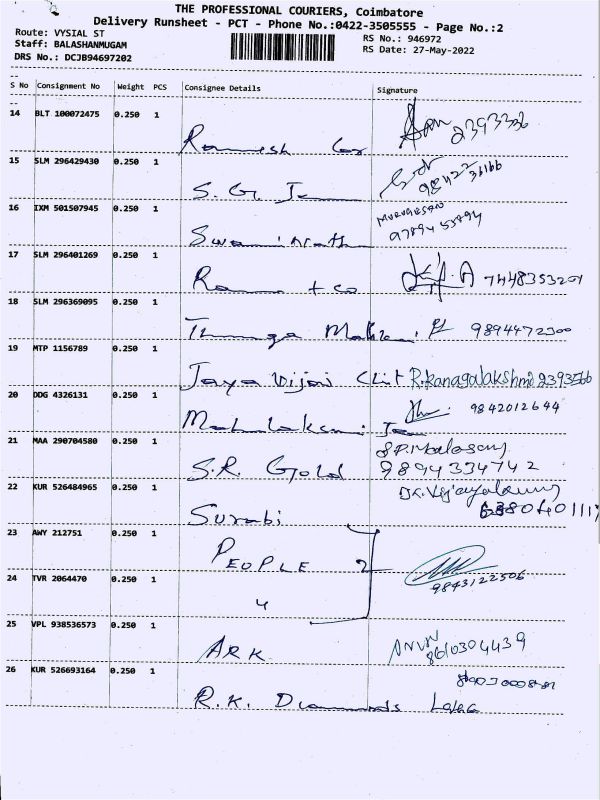 THE PROFESSIONAL COURIERS, Coimbatore
Delivery Runsheet - PCT - Phone No.:0422-3505555 - Page No.:2
Route: VYSIAL ST RS No.: 946972
Staff: BALASHANMUGAM RS Date: 27-May-2022
DRS No.: DCJB94697202
S No Consignment No Weight PCS Consignee Details Signature
14 BLT 100072475 0.250 1
Ramesh 2393366
15 SLM 296429430 0.250 1
S. G. 98422 36166
16 IXM 501507945 0.250 1 MURUGESAN
Swaminath 9789455894
17 SLM 296401269 0.250 1
Ram + co 7448353201
18 SLM 296369095 0.250 1
Thanga 9894472300
19 MTP 1156789 0.250 1
Jaya Vijai Clit R.Kanagalakshmi 2393566
20 DDG 4326131 0.250 1
Mahalaksmi 9842012644
21 MAA 290704580 0.250 1
S.R. Gold 9894334742
22 KUR 526484965 0.250 1
Surabi
23 AWY 212751 0.250 1
PEOPLE 2
24 TVR 2064470 0.250 1
4 9843122506
25 VPL 938536573 0.250 1
ARK 8610304439
26 KUR 526693164 0.250 1
R.K. Diamonds